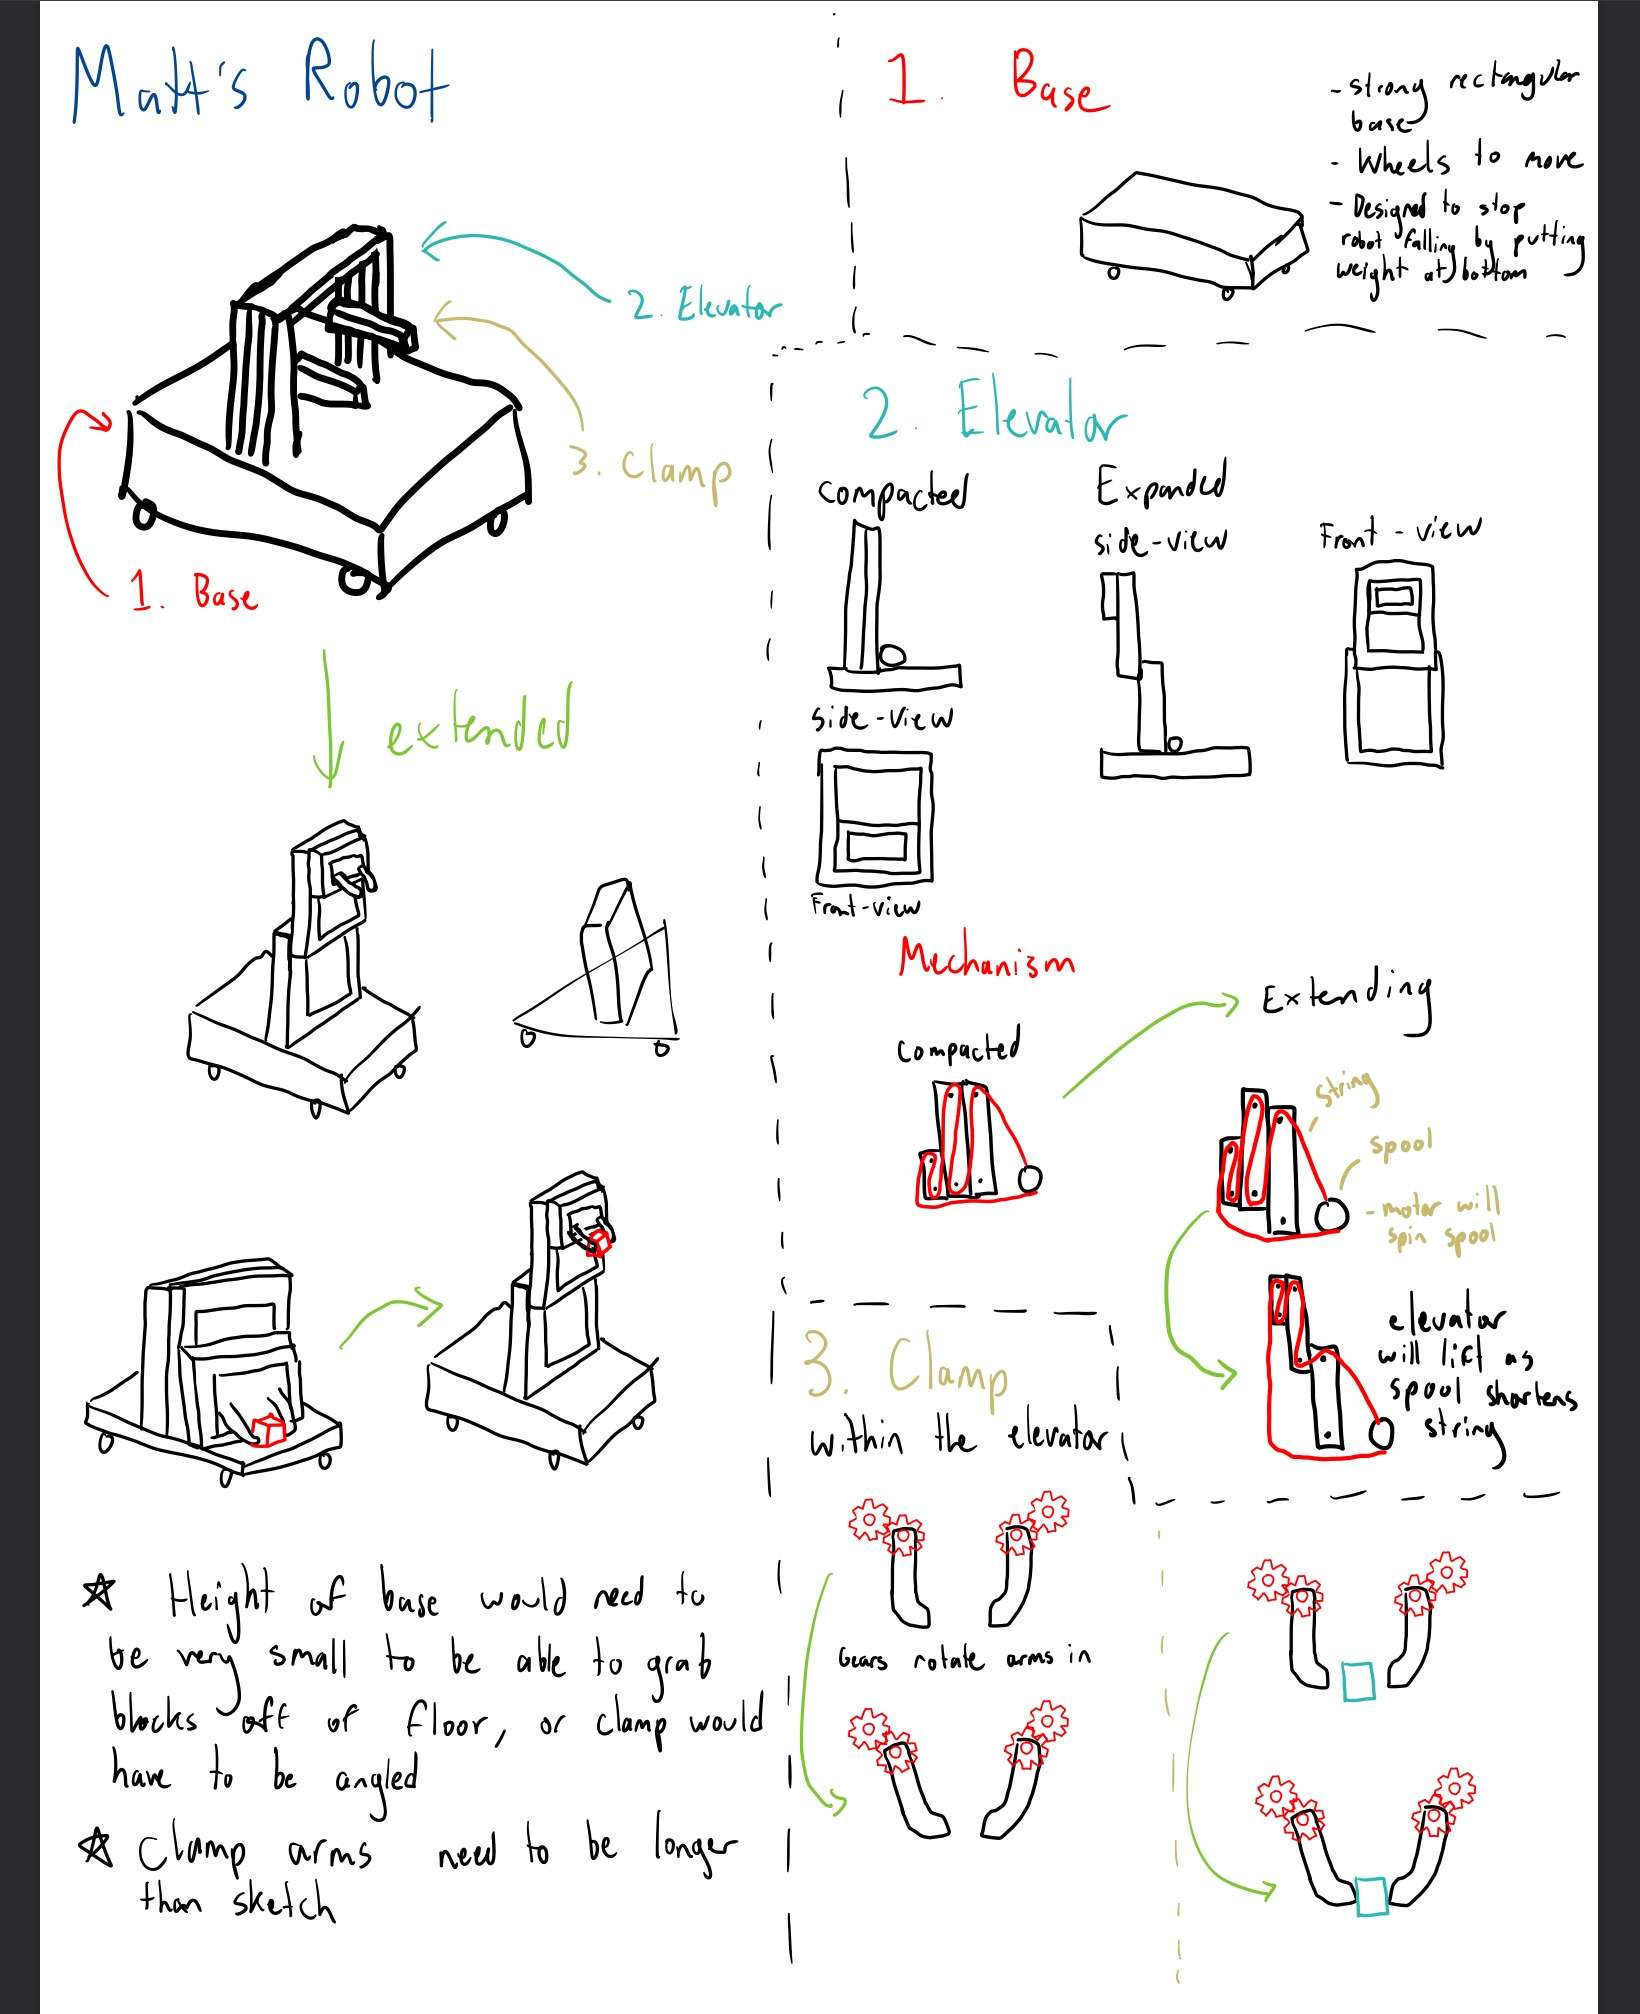 Matt's Robot
2. Elevator
3. Clamp
1. Base
extended
☆ Height of base would need to
be very small to be able to grab
blocks off of floor, or clamp would
have to be angled
☆ Clamp arms need to be longer
than sketch
1. Base
- strong rectangular
base
- Wheels to move
- Designed to stop
robot falling by putting
weight at bottom
2. Elevator
Compacted
side-view
Front-view
Expanded
side-view
Front-view
Mechanism
Compacted
Extending
string
spool
- motor will
spin spool
elevator
will lift as
spool shortens
string
3. Clamp
within the elevator
Gears rotate arms in